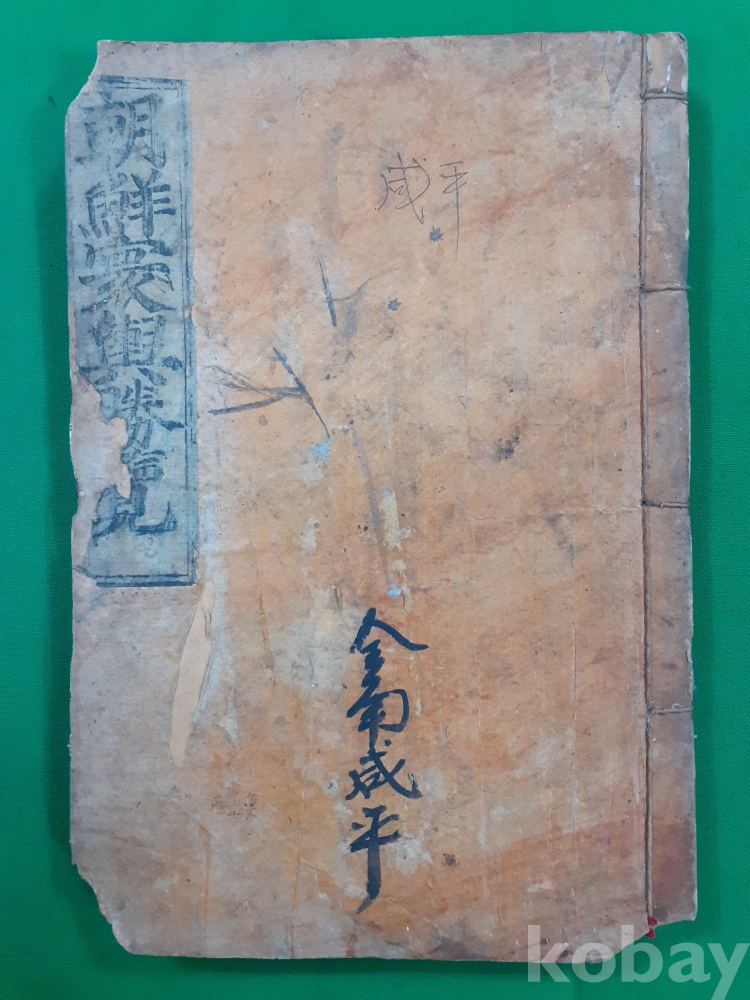 朝鮮寰輿勝覽
咸平
全南咸平
kobay